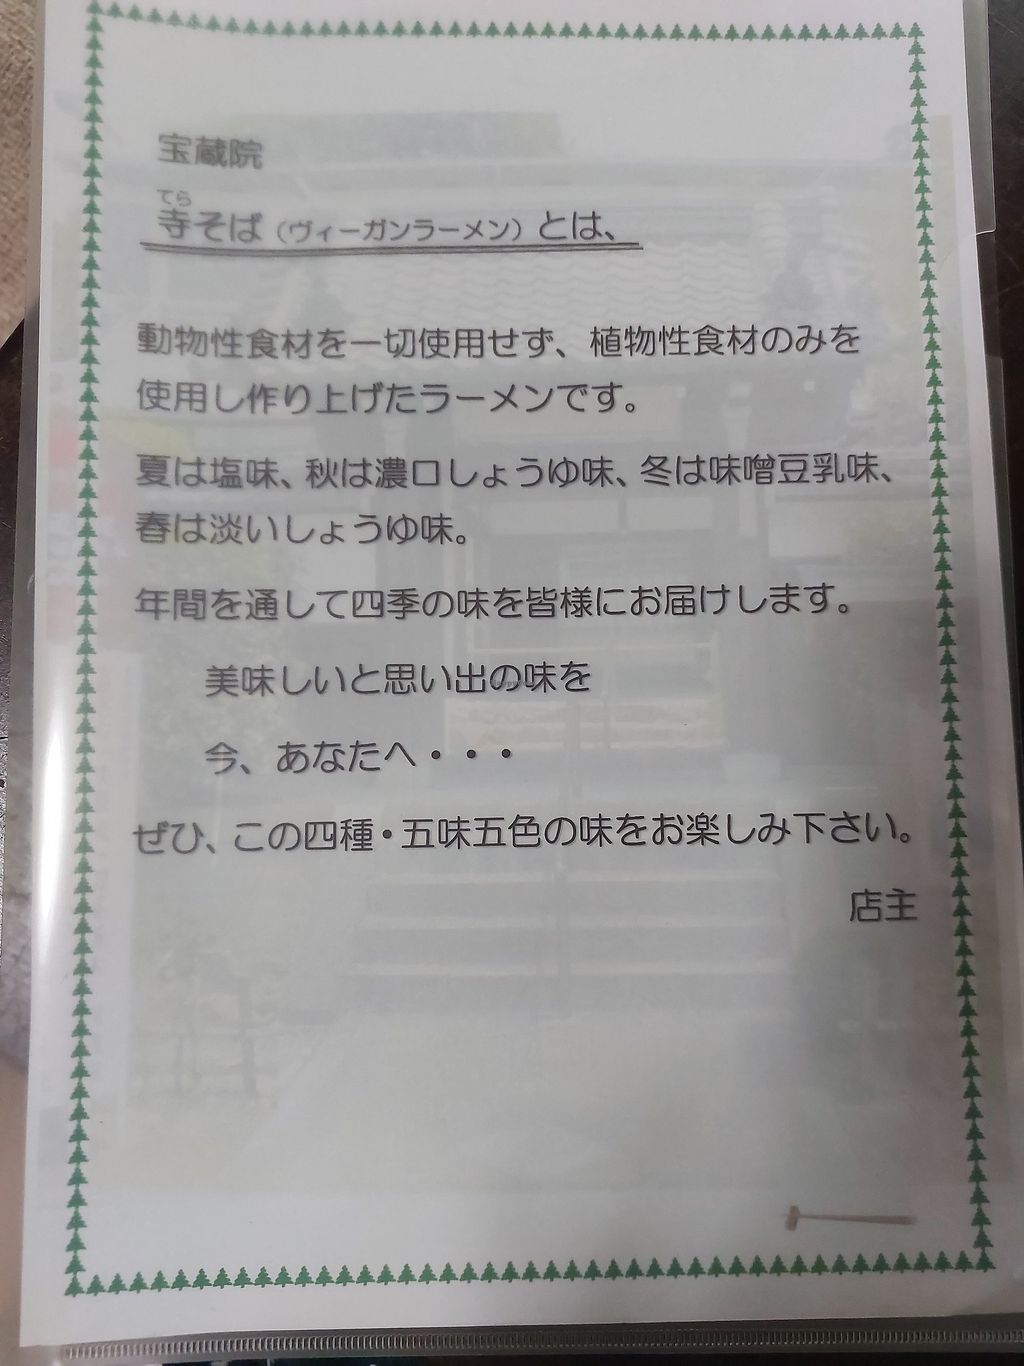 宝蔵院
てら
寺そば（ヴィーガンラーメン）とは、
動物性食材を一切使用せず、植物性食材のみを
使用し作り上げたラーメンです。
夏は塩味、秋は濃口しょうゆ味、冬は味噌豆乳味、
春は淡いしょうゆ味。
年間を通して四季の味を皆様にお届けします。
美味しいと思い出の味を
今、あなたへ・・・
ぜひ、この四種・五味五色の味をお楽しみ下さい。
店主